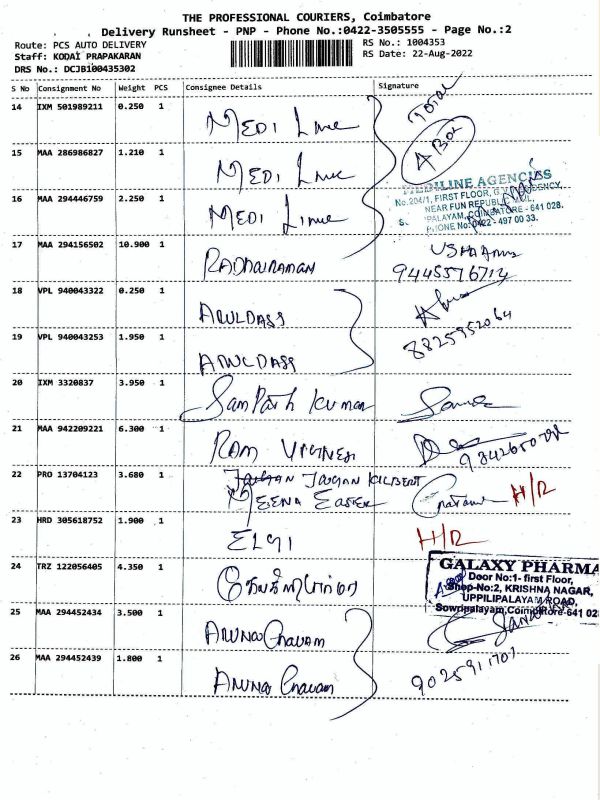 THE PROFESSIONAL COURIERS, Coimbatore
Delivery Runsheet - PNP - Phone No.:0422-3505555 - Page No.:2
Route: PCS AUTO DELIVERY
RS No.: 1004353
Staff: KODAI PRAPAKARAN
RS Date: 22-Aug-2022
DRS No.: DCJB100435302
S No Consignment No Weight PCS Consignee Details Signature
14 IXM 501989211 0.250 1 MEDI Line Total
15 MAA 286986827 1.210 1 MEDI Line A Box
16 MAA 294446759 2.250 1 MEDI Line
MEDILINE AGENCIES
No.204/1, FIRST FLOOR,
NEAR FUN REPUBLIC MALL,
COIMBATORE - 641 028.
PHONE No: 0422 - 497 00 33.
17 MAA 294156502 10.900 1
18 VPL 940043322 0.250 1 ARULDASS
8825952064
19 VPL 940043253 1.950 1 ARULDASS
20 IXM 3320837 3.950 1 Sampath Kumar
21 MAA 942209221 6.300 1 RAM
22 PRO 13704123 3.680 1 MEENA H/R
23 HRD 305618752 1.900 1 ELGI H/R
24 TRZ 122056405 4.350 1
GALAXY PHARMA
Door No:1- first Floor,
Shop-No:2, KRISHNA NAGAR,
UPPILIPALAYAM ROAD,
Sowripalayam,Coimbatore-641 028
25 MAA 294452434 3.500 1
26 MAA 294452439 1.800 1
9025911707